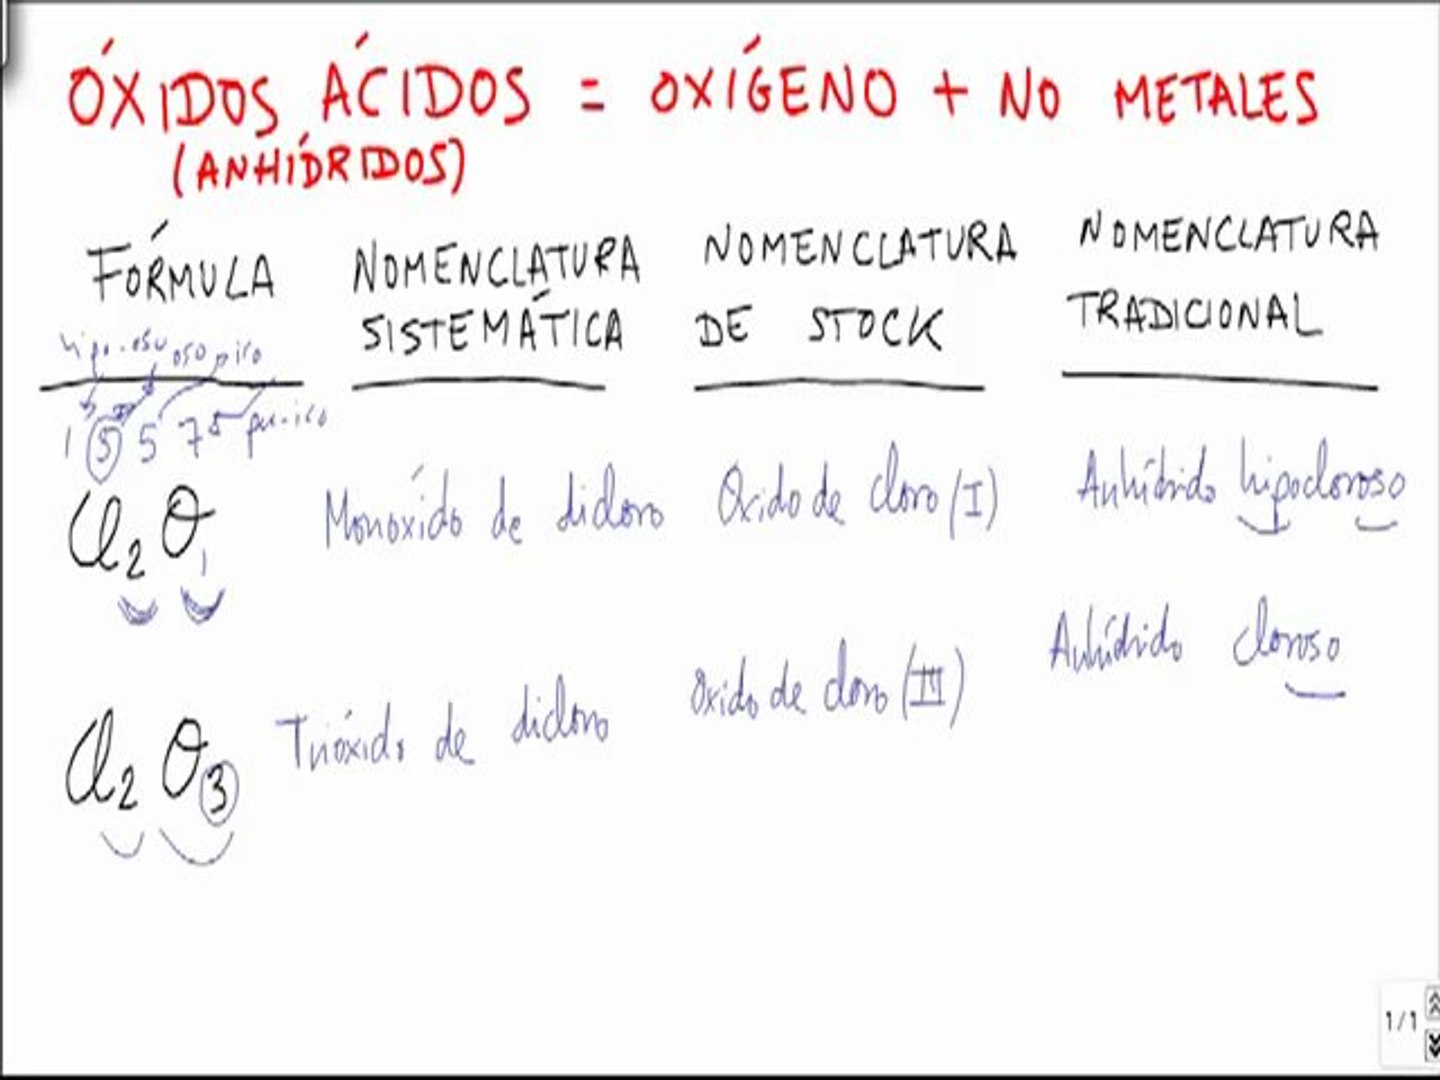 ÓXIDOS ÁCIDOS = OXÍGENO + NO METALES
(ANHÍDRIDOS)
FÓRMULA
NOMENCLATURA SISTEMÁTICA
NOMENCLATURA DE STOCK
NOMENCLATURA TRADICIONAL
hipo-oso oso ico
1 3 5 7 per-ico
Cl2O1 Monóxido de dicloro Oxido de cloro (I) Anhídrido hipocloroso
Cl2O3 Trióxido de dicloro Oxido de cloro (III) Anhídrido cloroso
1/1